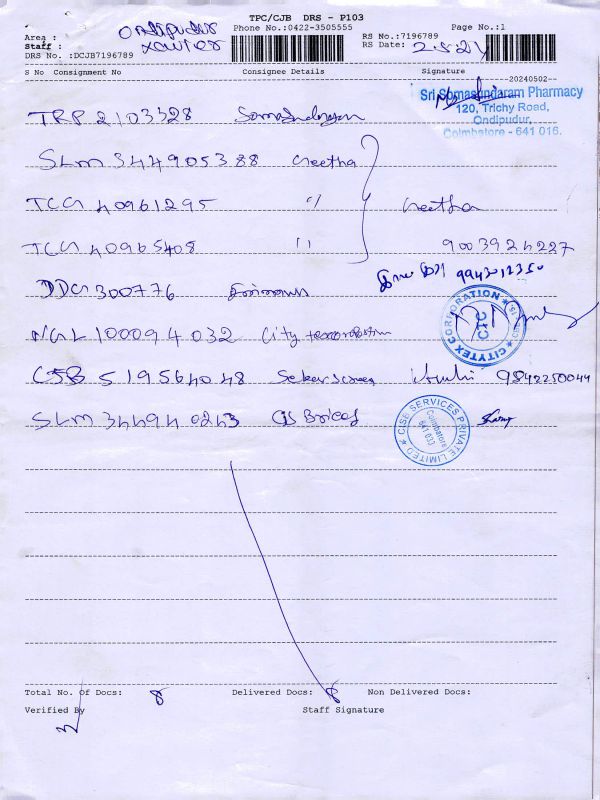 TPC/CJB DRS - P103
Area : Ondipudur
Phone No.:0422-3505555
Page No.:1
Staff : Xavier
RS No.:7196789
RS Date: 2.5.24
DRS No. :DCJB7196789
S No Consignment No Consignee Details Signature
20240502
Sri Somasundaram Pharmacy
120, Trichy Road,
Ondipudur,
Coimbatore - 641 016.
TRP 2103328 Somasundaram
SLM 344905388 Geetha
TCG 40961295 " Geetha
TCG 40965408 " 9003924227
DDG 300776
9943012350
CITYTEX CORPORATION
CTC
NGL 100094032 City
CJB 519564048 9842250044
SLM 344940243
CISE SERVICES PRIVATE LIMITED
Coimbatore
641 033
Total No. Of Docs: 8 Delivered Docs: 8 Non Delivered Docs:
Verified By Staff Signature